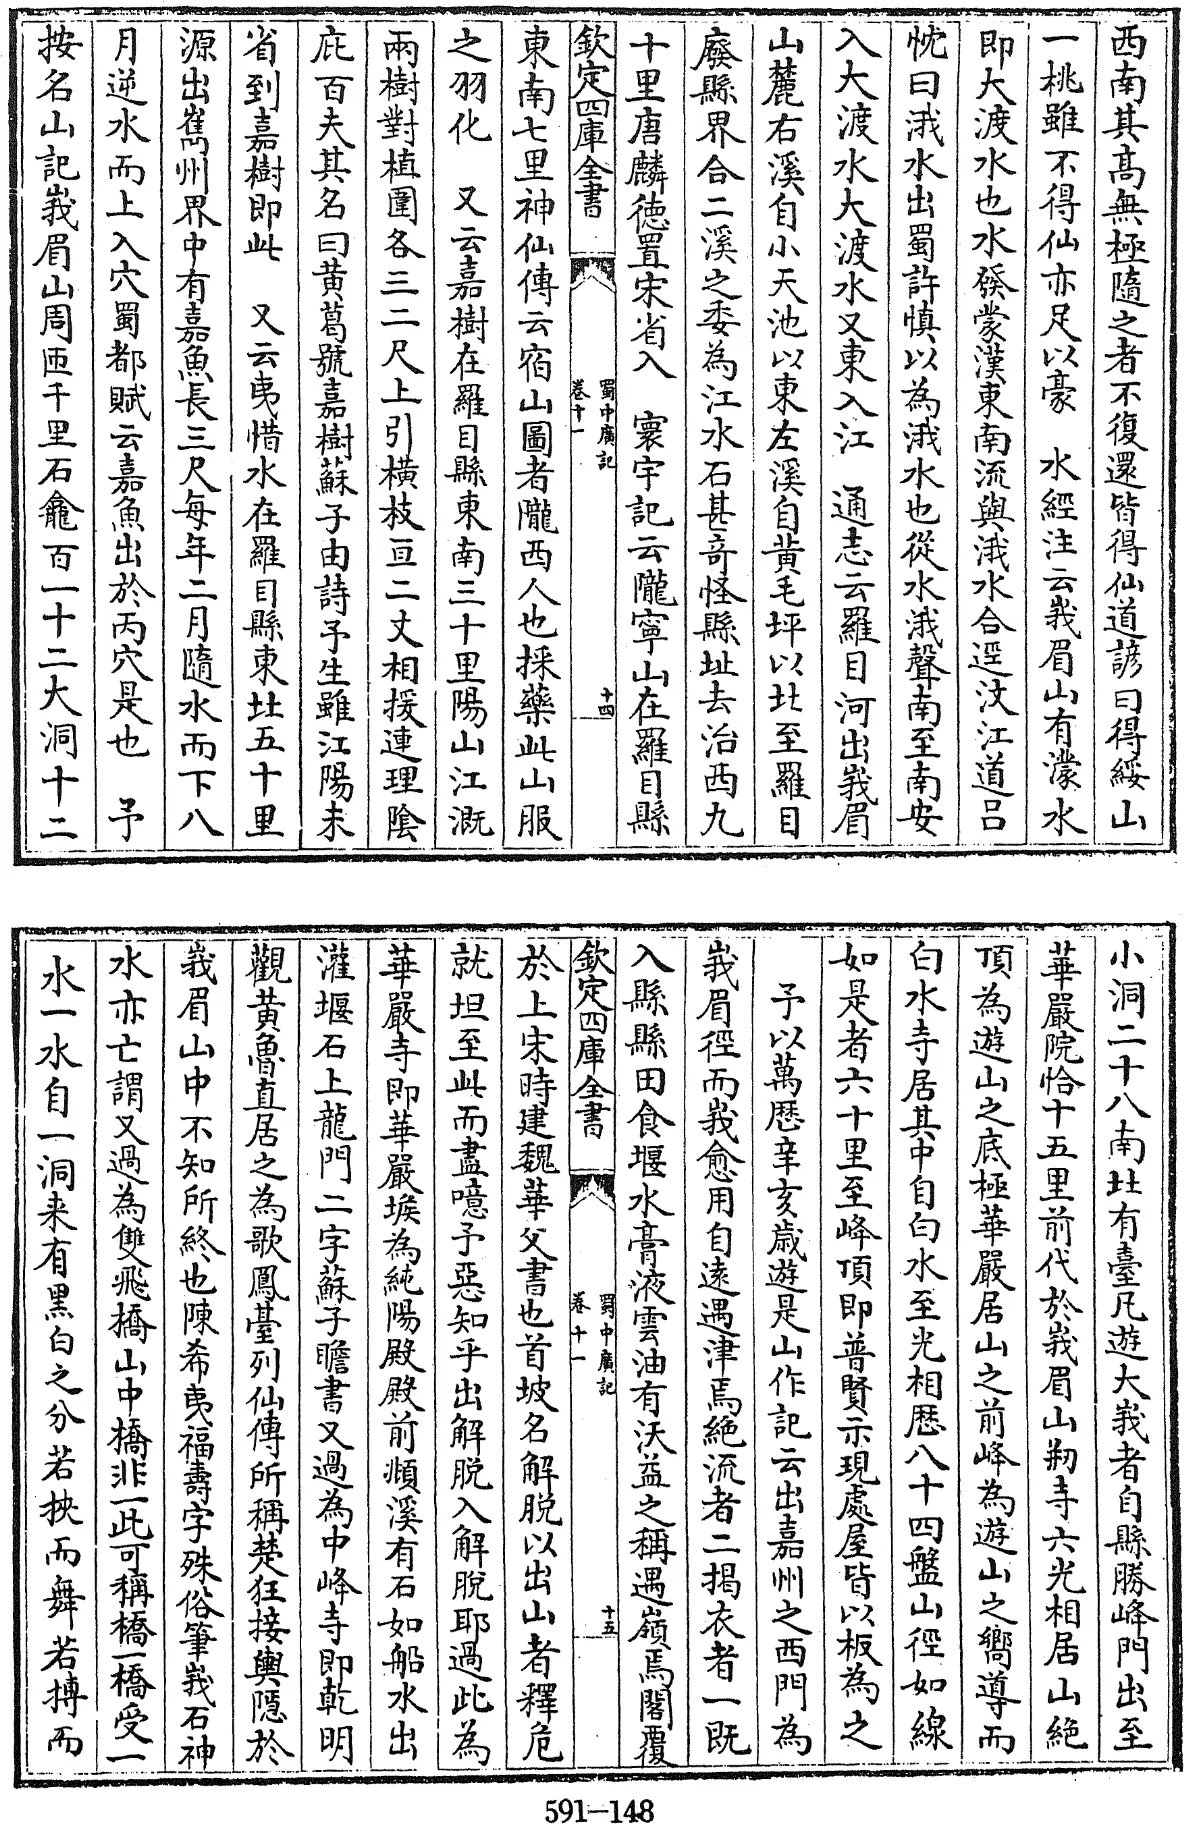 西南其高無極隨之者不復還皆得仙道諺曰得綏山
一桃雖不得仙亦足以豪　水經注云峩眉山有濛水
即大渡水也水發蒙漢東南流與涐水合逕汶江道吕
忱曰涐水出蜀許慎以為涐水也從水涐聲南至南安
入大渡水大渡水又東入江　通志云羅目河出峩眉
山麓右溪自小天池以東左溪自黄毛坪以北至羅目
廢縣界合二溪之委為江水石甚竒怪縣址去治西九
十里唐麟德置宋省入　寰宇記云隴寧山在羅目縣
欽定四庫全書
蜀中廣記
卷十一
十四
東南七里神仙傳云宿山圖者隴西人也採藥此山服
之羽化　又云嘉樹在羅目縣東南三十里陽山江溉
兩樹對植圍各三二尺上引横枝亘二丈相援連理隂
庇百夫其名曰黄葛號嘉樹蘇子由詩予生雖江陽未
省到嘉樹即此　又云夷惜水在羅目縣東北五十里
源出嶲州界中有嘉魚長三尺每年二月隨水而下八
月逆水而上入穴蜀都賦云嘉魚出於丙穴是也　予
按名山記峩眉山周匝千里石龕百一十二大洞十二
小洞二十八南北有臺凡遊大峩者自縣勝峰門出至
華嚴院恰十五里前代於峩眉山剏寺六光相居山絶
頂為遊山之底極華嚴居山之前峰為遊山之嚮導而
白水寺居其中自白水至光相歴八十四盤山徑如線
如是者六十里至峰頂即普賢示現處屋皆以板為之
予以萬歴辛亥歳遊是山作記云出嘉州之西門為
峩眉徑而峩愈用自遠遇津焉絶流者二揭衣者一既
入縣縣田食堰水膏液雲油有沃益之稱遇嶺焉閣覆
欽定四庫全書
蜀中廣記
卷十一
十五
於上宋時建魏華父書也首坡名解脱以出山者釋危
就坦至此而盡噫予惡知乎出解脱入解脱耶過此為
華嚴寺即華嚴堠為純陽殿殿前瀕溪有石如船水出
灌堰石上龍門二字蘇子瞻書又過為中峰寺即乾明
觀黄魯直居之為歌鳳臺列仙傳所稱楚狂接輿隱於
峩眉山中不知所終也陳希夷福壽字殊俗筆峩石神
水亦亡謂又過為雙飛橋山中橋非一此可稱橋一橋受一
水一水自一洞来有黑白之分若挾而舞若摶而
591-148